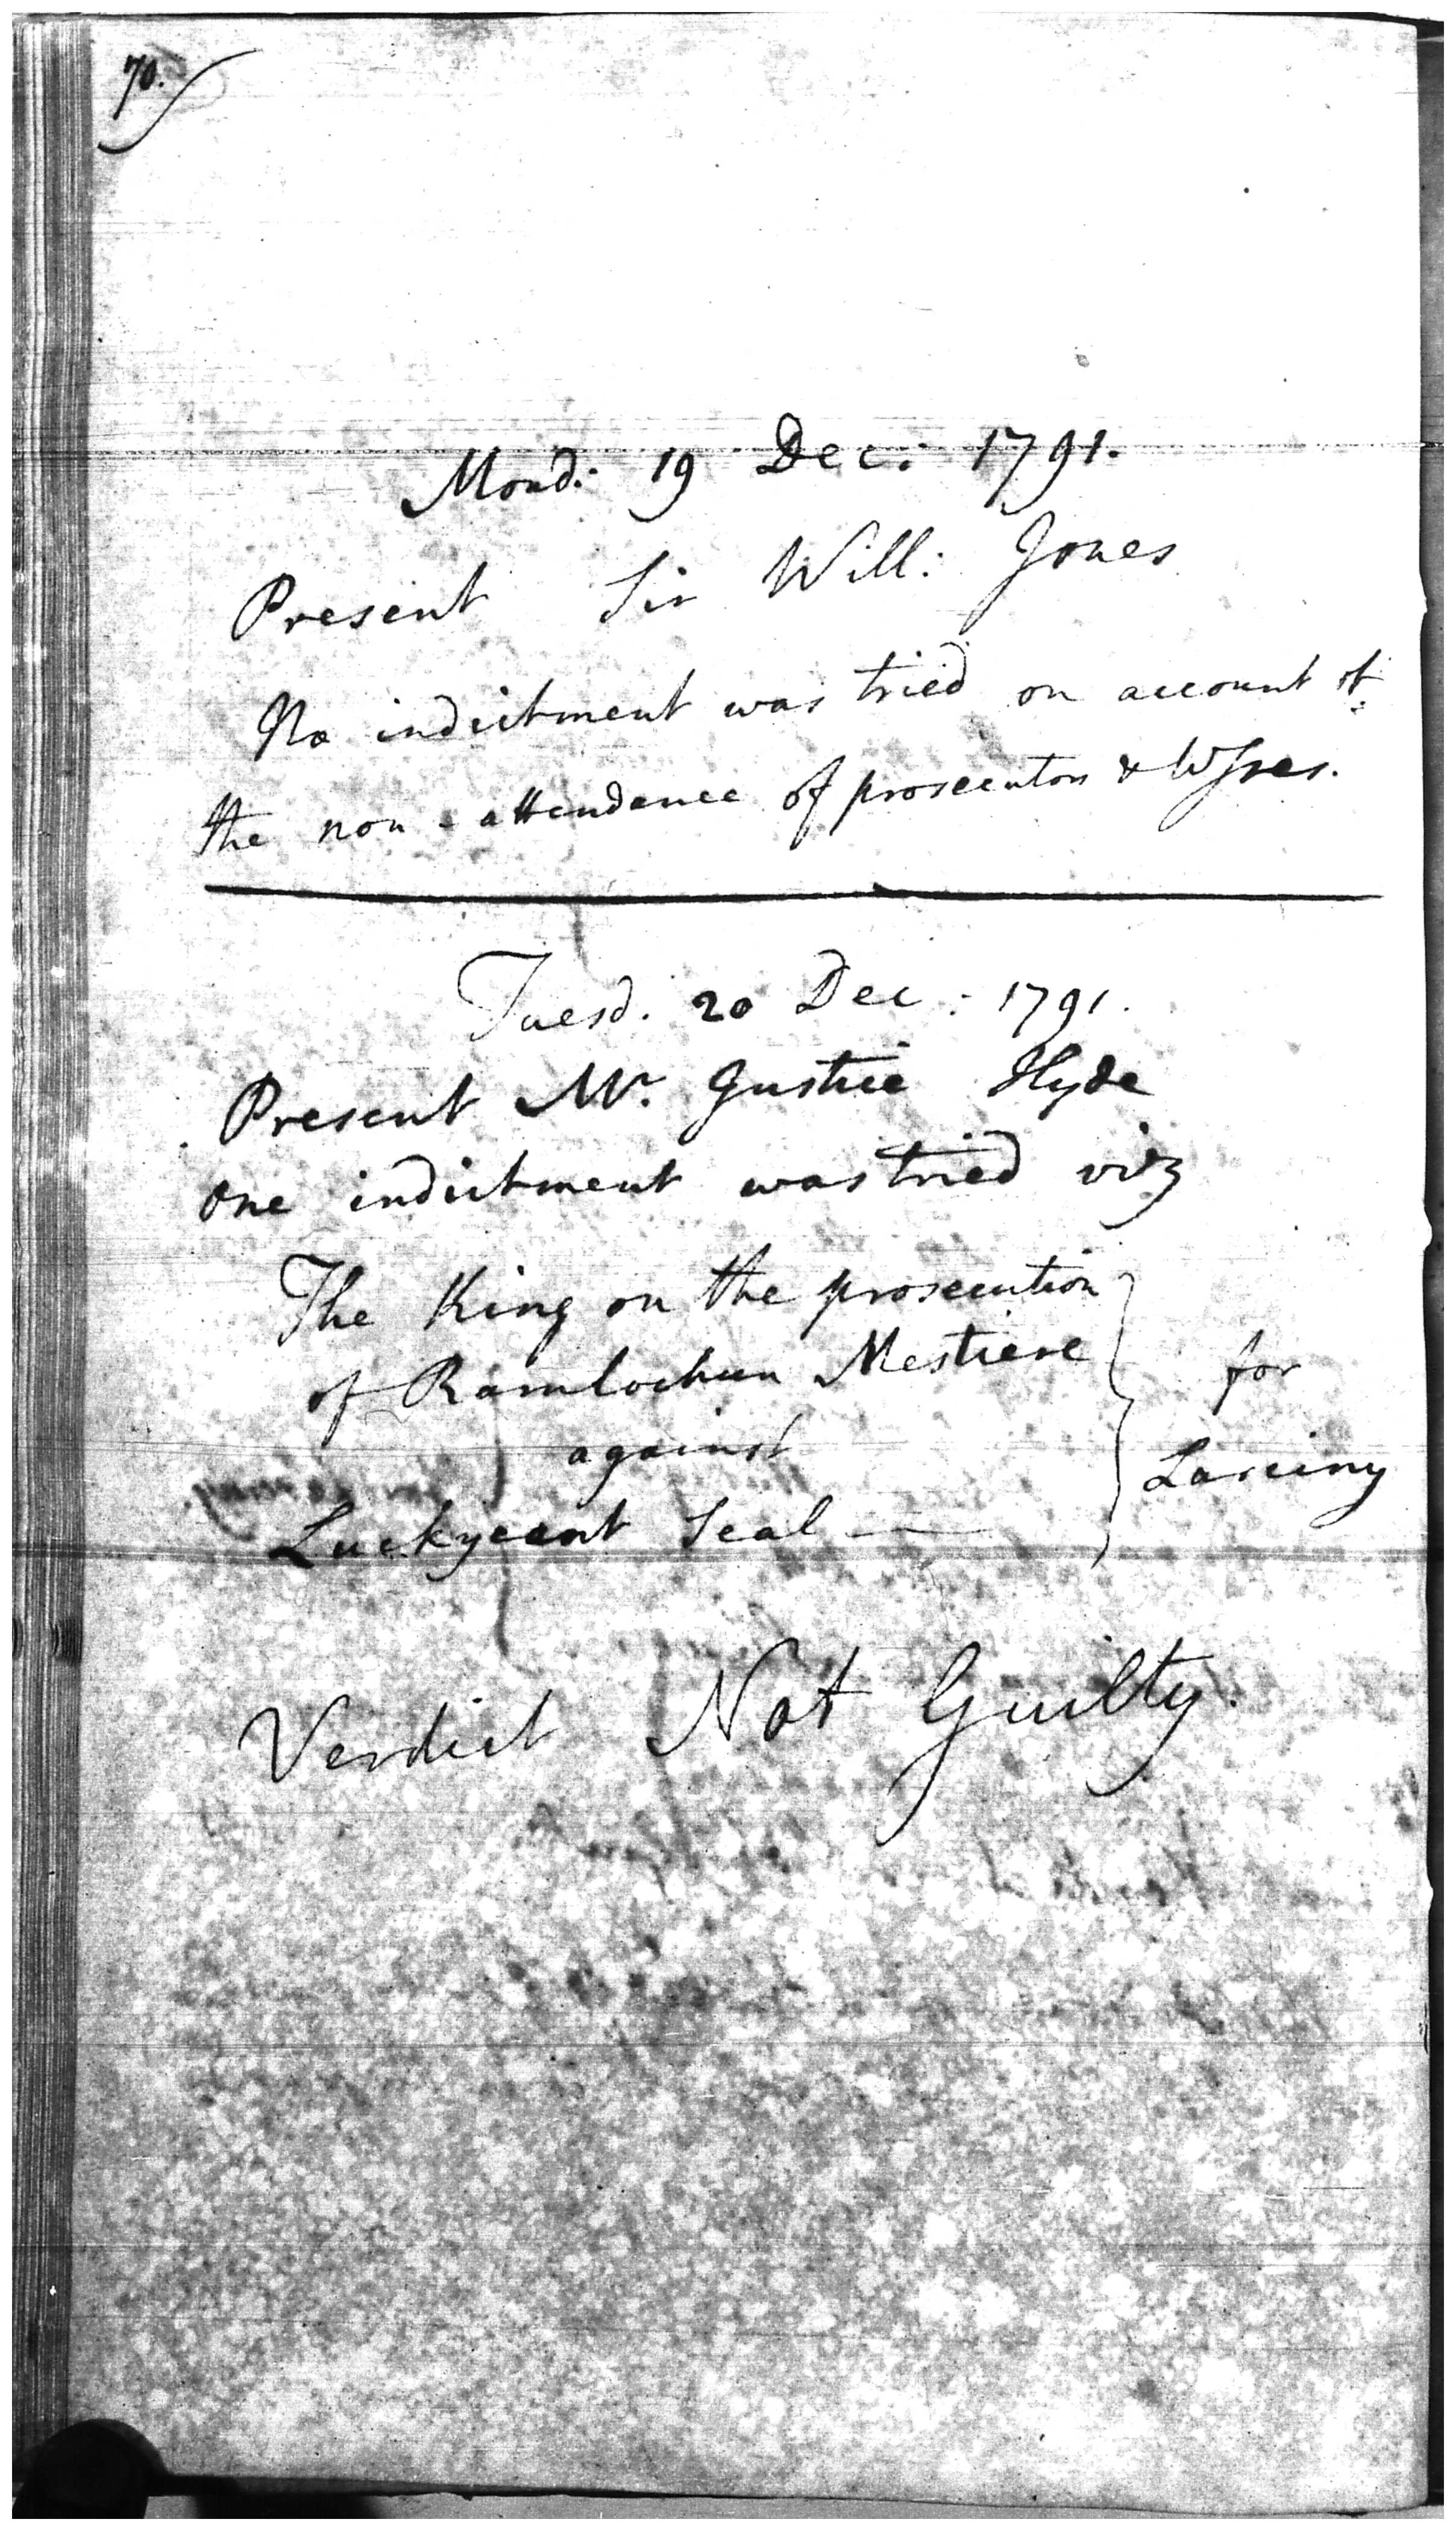 70.
Mond: 19 Dec: 1791.
Present Sir Will: Jones
No indictment was tried on account of
the non-attendance of prosecutors & Wsses.
Tuesd. 20 Dec: 1791.
Present Mr. Justice Hyde
One indictment was tried viz
The King on the prosecution
of Ramlochun Mestiere
against
Luckycant Seal
for
Larciny
Verdict Not Guilty.